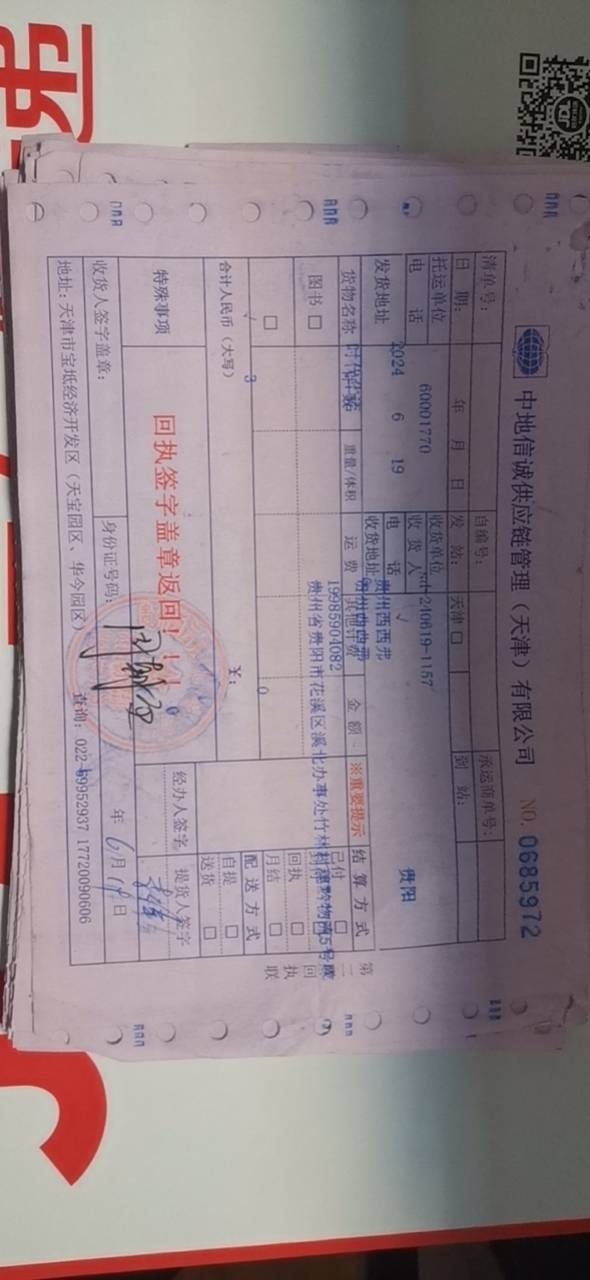 中地信诚供应链管理（天津）有限公司 NO. 0685972
清单号： 自编号： 承运商单号：
日 期： 年 月 日 发 站： 天津 □ 到 站：
2024 6 19 贵阳
托运单位 收货单位 240619-1157
电 话 60001770 收 货 人
电 话 贵州西西弗
发货地址 收货地址
19985904082
货物名称 重量/体积 运 费 其他计费 金 额 ※重要提示 结 算 方 式
贵州省贵阳市花溪区溪北办事处竹林村
图书 □ 已付 □
回执 □
□ 月结 □
3 0
合计人民币（大写） ¥： 配 送 方 式
自提 □
送货 □
特殊事项 回执签字盖章返回！！！ 经办人签字 提货人签字
收货人签字盖章： 身份证号码： 年 6月19日
地址：天津市宝坻经济开发区（天宝园区、华今园区） 查询：022-59952937 17720090606
第二联 回执